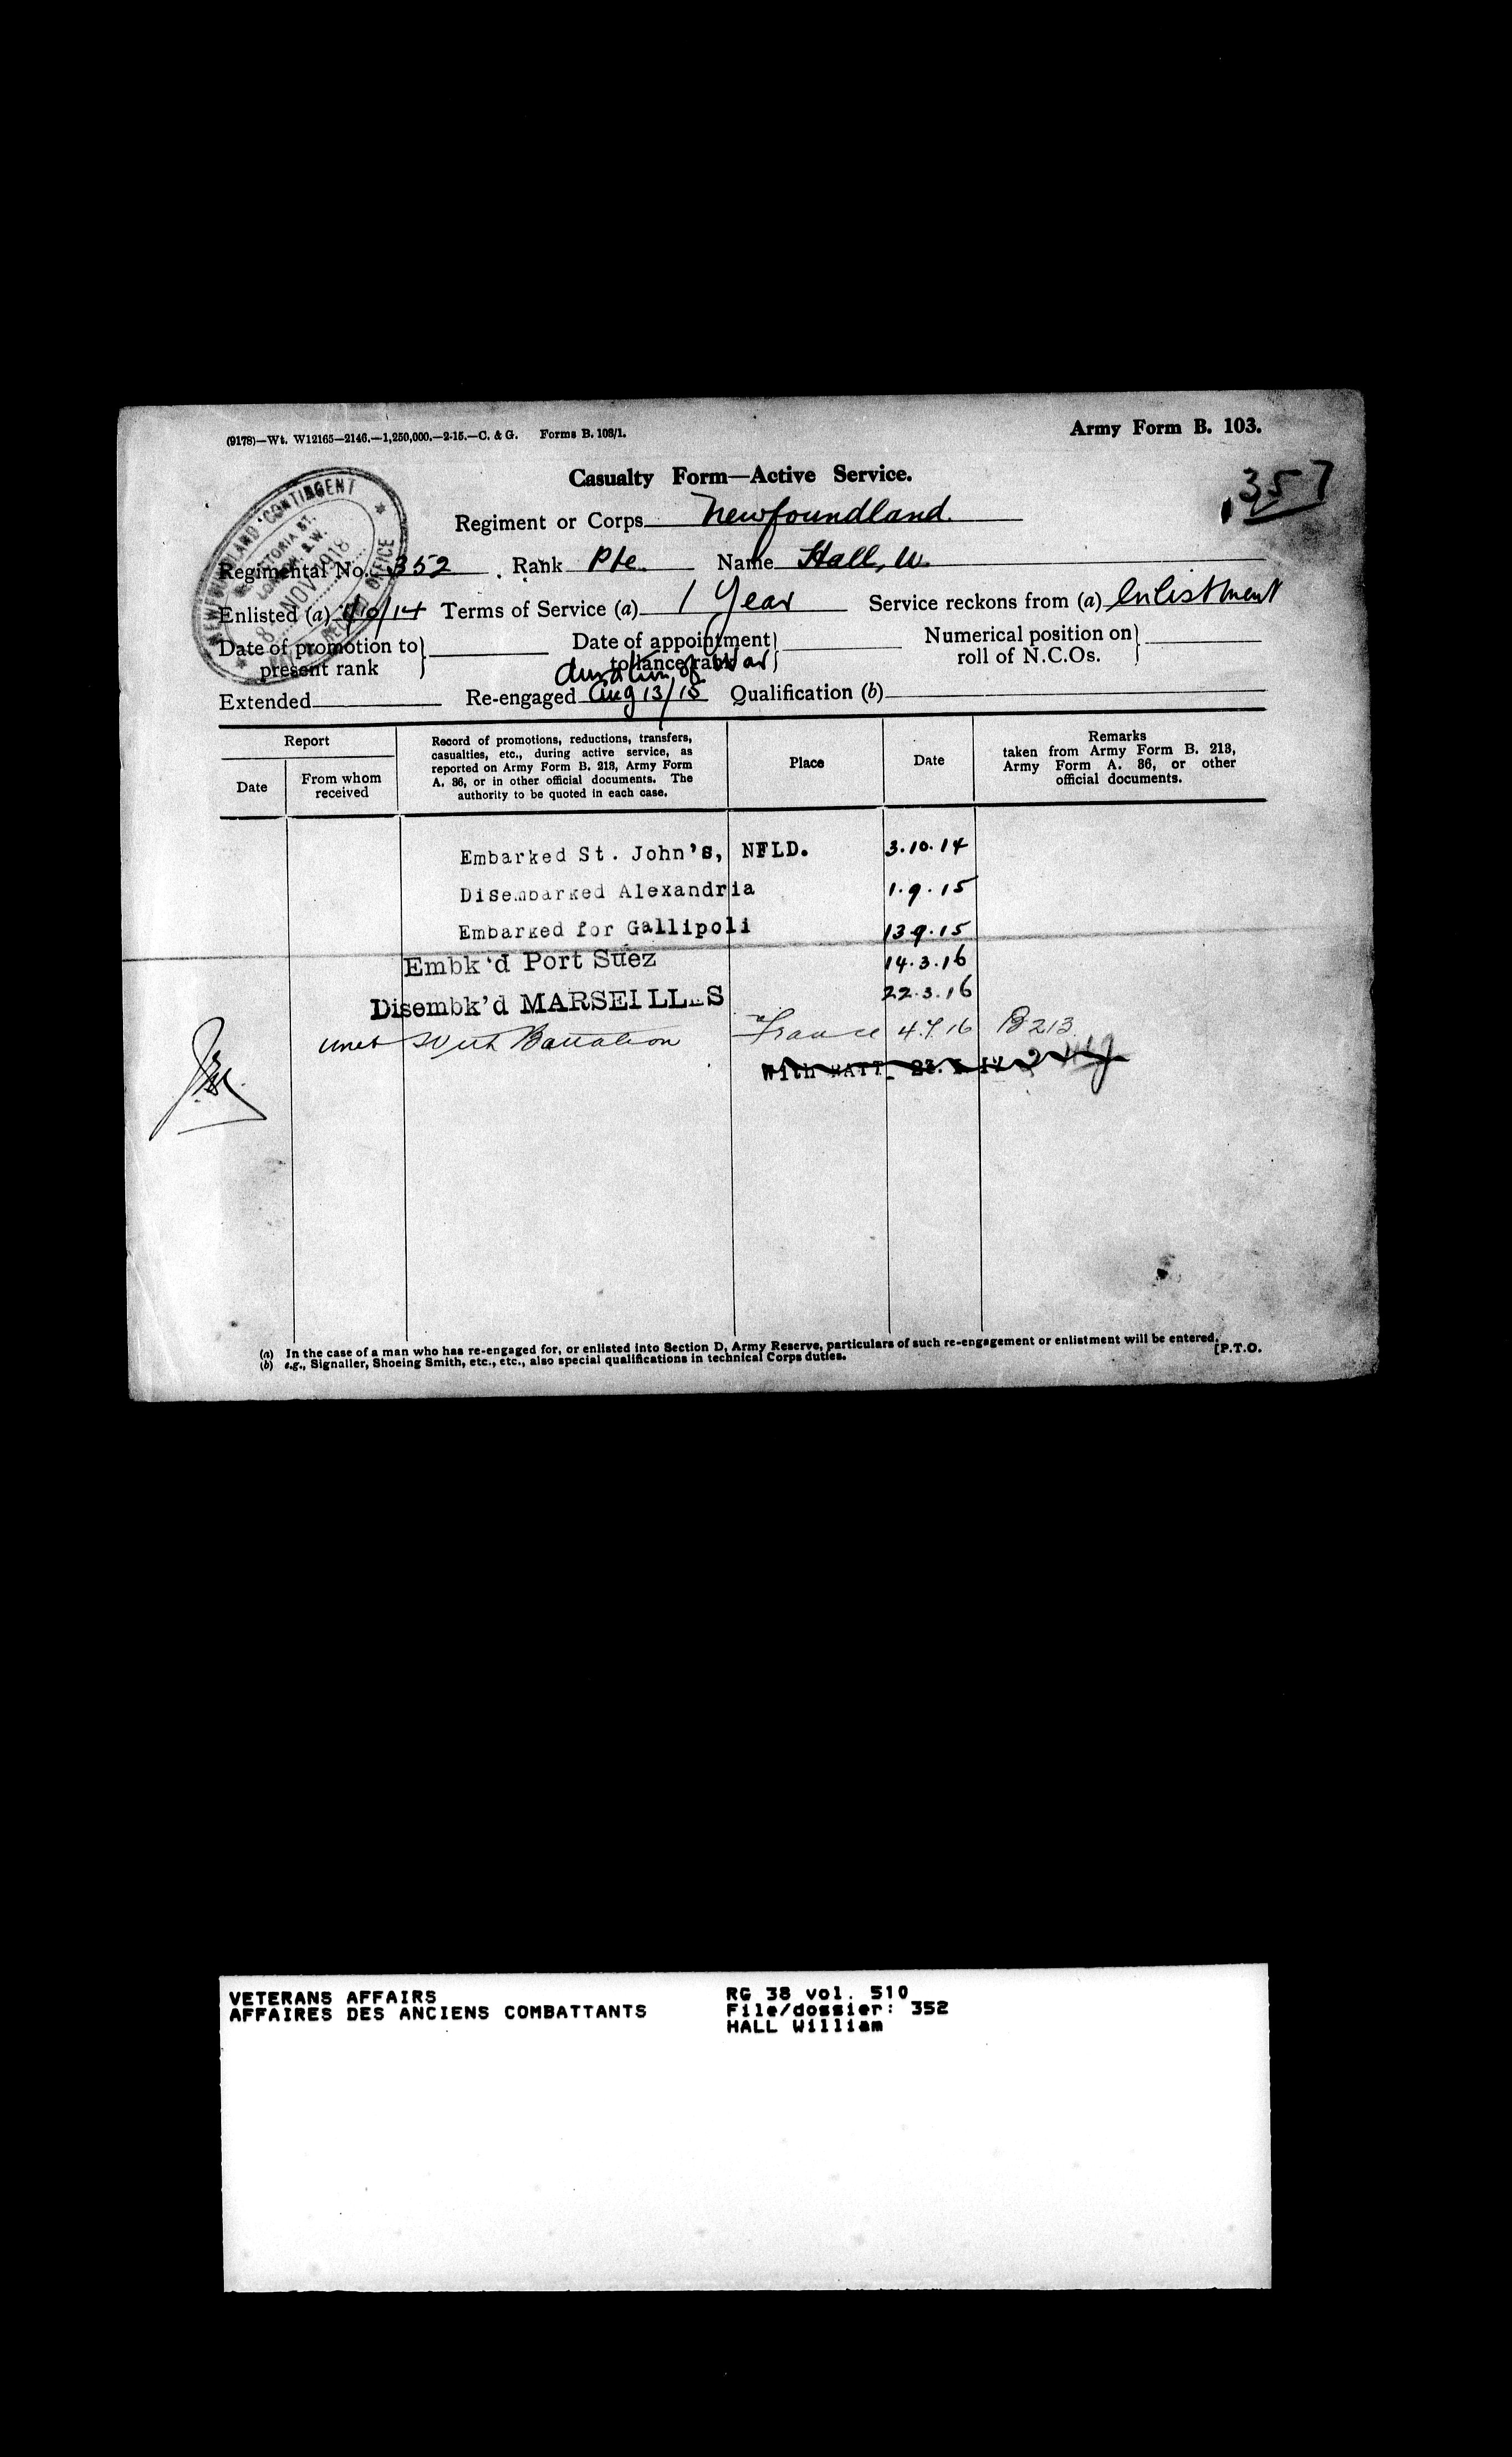 (9178)—Wt. W12165—2146.—1,250,000.—2-15.—C. & G. Forms B. 103/1.
Army Form B. 103.
Casualty Form—Active Service.
357
Regiment or Corps Newfoundland.
NEWFOUNDLAND CONTINGENT
VICTORIA ST.
LONDON. S.W.
8 NOV 1918
OFFICE
Regimental No. 352 Rank Pte. Name Hall, W.
Enlisted (a) /10/14 Terms of Service (a) 1 Year Service reckons from (a) Enlistment
Date of promotion to present rank Date of appointment to lance rank Numerical position on roll of N.C.Os.
duration of War
Extended Re-engaged Aug 13/15 Qualification (b)
Report
Date
From whom received
Record of promotions, reductions, transfers,
casualties, etc., during active service, as
reported on Army Form B. 213, Army Form
A. 36, or in other official documents. The
authority to be quoted in each case.
Place
Date
Remarks
taken from Army Form B. 213,
Army Form A. 36, or other
official documents.
Embarked St. John's, NFLD. 3.10.14
Disembarked Alexandria 1.9.15
Embarked for Gallipoli 13.9.15
Embk'd Port Suez 14.3.16
Disembk'd MARSEILLES 22.3.16
With Battalion France 4.7.16 B213
With BATT.
(a) In the case of a man who has re-engaged for, or enlisted into Section D, Army Reserve, particulars of such re-engagement or enlistment will be entered.
(b) e.g., Signaller, Shoeing Smith, etc., etc., also special qualifications in technical Corps duties.
[P.T.O.
VETERANS AFFAIRS
AFFAIRES DES ANCIENS COMBATTANTS
RG 38 vol. 510
File/dossier: 352
HALL William